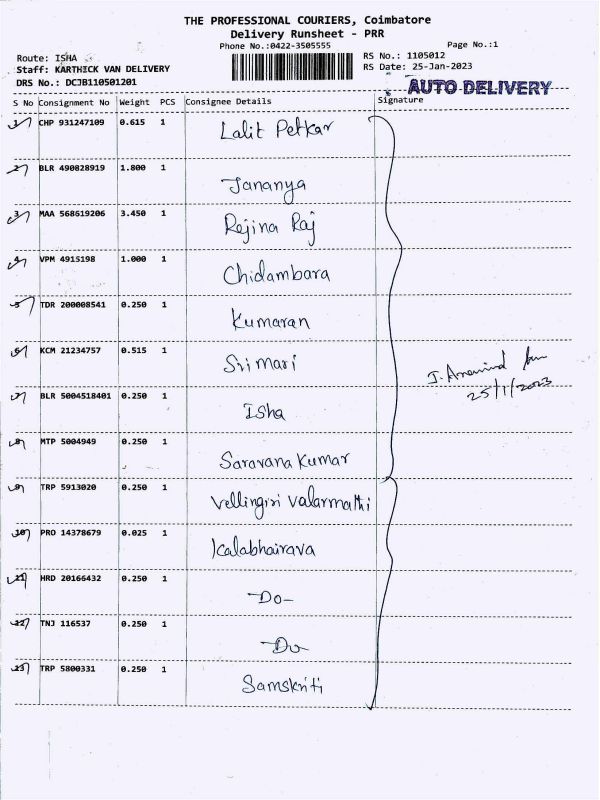 THE PROFESSIONAL COURIERS, Coimbatore
Delivery Runsheet - PRR
Phone No.:0422-3505555 Page No.:1
Route: ISHA RS No.: 1105012
Staff: KARTHICK VAN DELIVERY RS Date: 25-Jan-2023
DRS No.: DCJB110501201
AUTO DELIVERY
S No Consignment No Weight PCS Consignee Details Signature
1 CHP 931247109 0.615 1 Lalit Petkar
2 BLR 490828919 1.800 1 Jananya
3 MAA 568619206 3.450 1 Rejina Raj
4 VPM 4915198 1.000 1 Chidambara
5 TDR 200008541 0.250 1 Kumaran
6 KCM 21234757 0.515 1 Srimari
J. Aravind
25/1/2023
7 BLR 5004518401 0.250 1 Isha
8 MTP 5004949 0.250 1 Saravana Kumar
9 TRP 5913020 0.250 1 Vellingiri Valarmathi
10 PRO 14378679 0.025 1 Kalabhairava
11 HRD 20166432 0.250 1 -Do-
12 TNJ 116537 0.250 1 -Do-
13 TRP 5800331 0.250 1 Samskriti